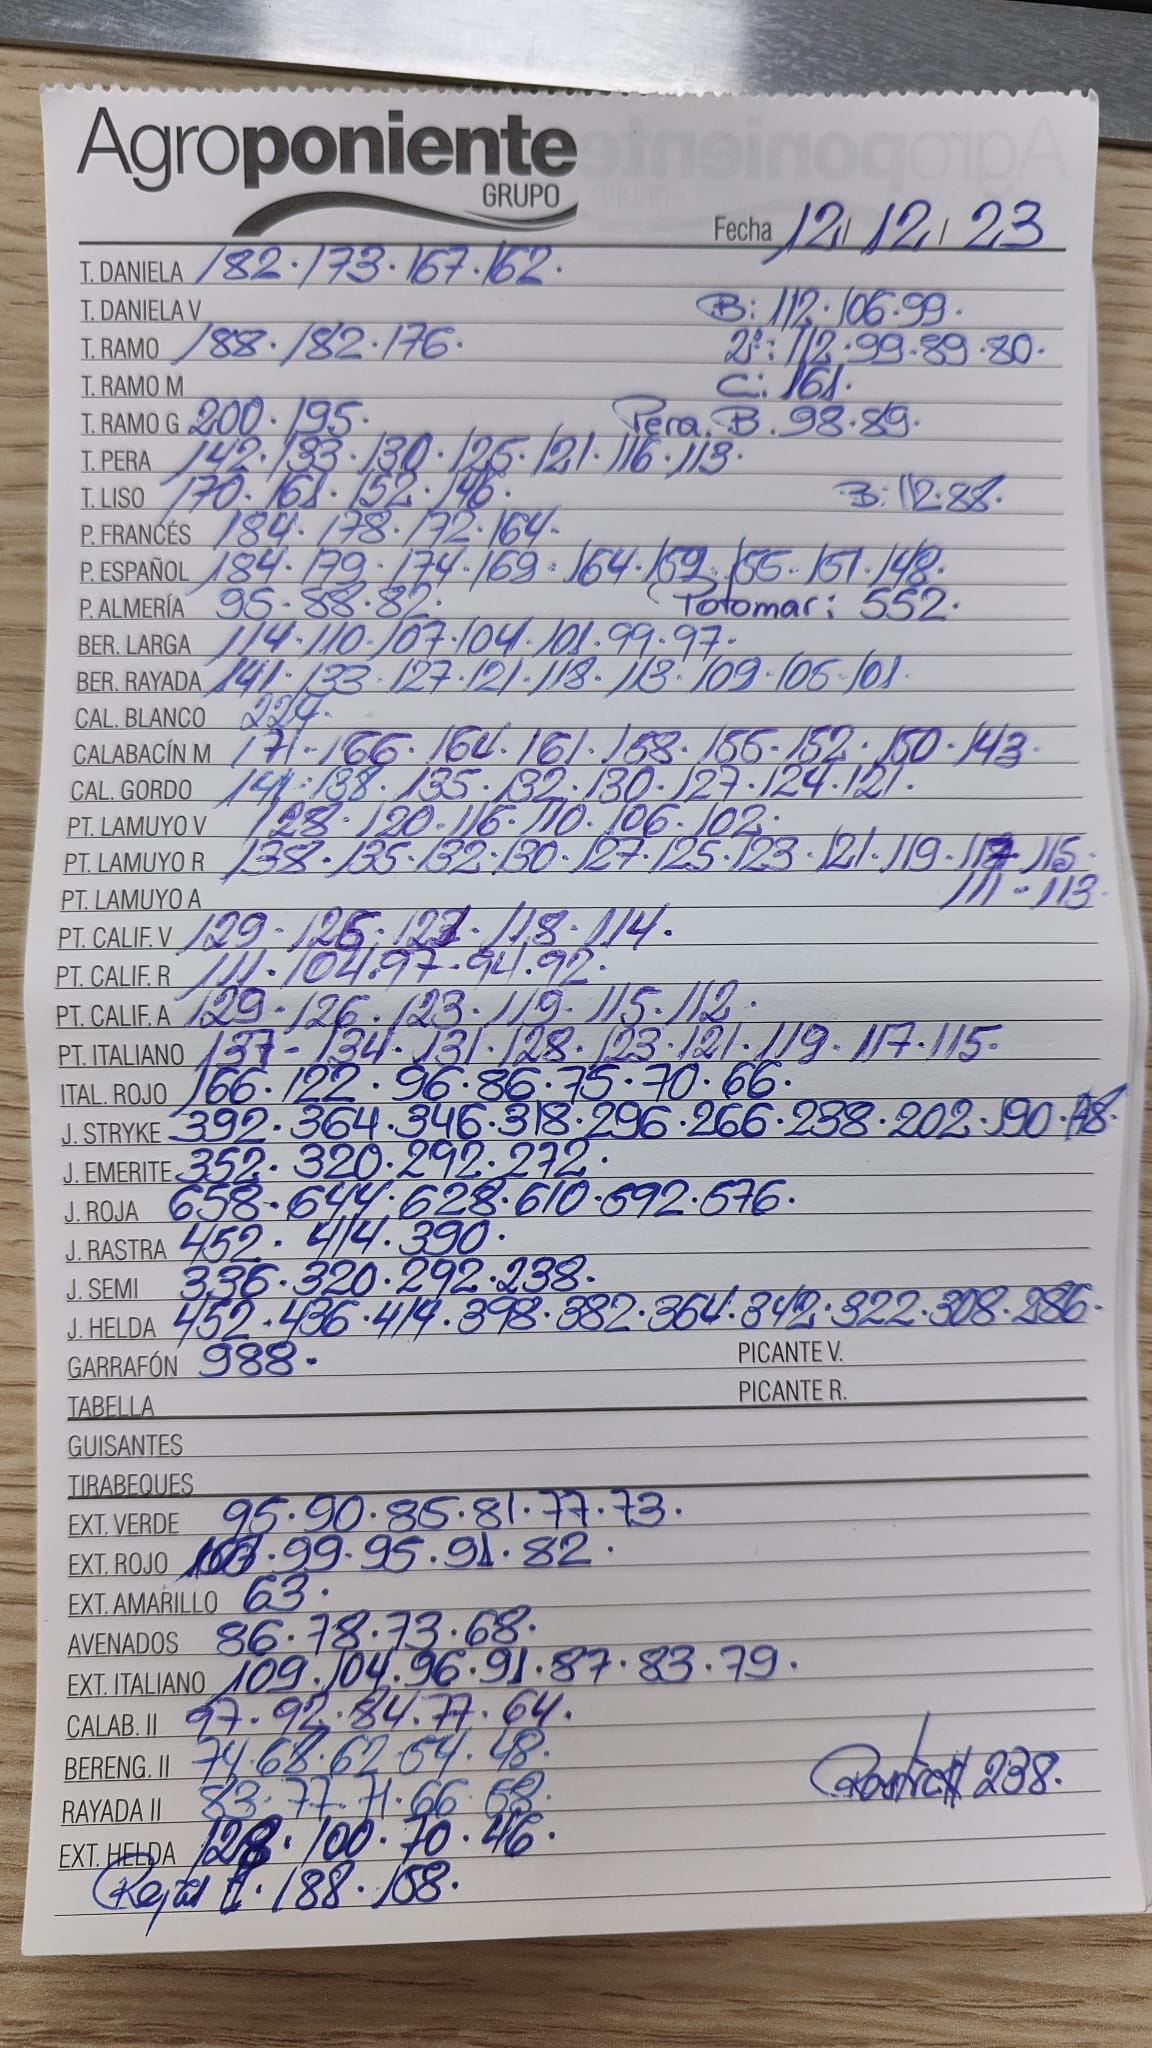 Agroponiente
GRUPO
Fecha 12/12/23
T. DANIELA 182.173.167.162.
T. DANIELA V B: 112.106.99.
T. RAMO 188.182.176. 2ª: 112.99.89.80.
T. RAMO M C: 161.
T. RAMO G 200.195. Pera. B. 98.89.
T. PERA 142.133.130.125.121.116.113.
T. LISO 170.161.152.146. B: 112.88.
P. FRANCÉS 184.178.172.164.
P. ESPAÑOL 184.179.174.169.164.159.155.151.148.
P. ALMERÍA 95.88.82. Potomar: 552.
BER. LARGA 114.110.107.104.101.99.97.
BER. RAYADA 141.133.127.121.118.113.109.105.101.
CAL. BLANCO 227.
CALABACÍN M 171.166.164.161.158.155.152.150.143.
CAL. GORDO 141.138.135.132.130.127.124.121.
PT. LAMUYO V 128.120.116.110.106.102.
PT. LAMUYO R 138.135.132.130.127.125.123.121.119.117.115.
PT. LAMUYO A 111.113.
PT. CALIF. V 129.125.121.118.114.
PT. CALIF. R 111.104.97.94.92.
PT. CALIF. A 129.126.123.119.115.112.
PT. ITALIANO 137-134.131.128.123.121.119.117.115.
ITAL. ROJO 166.122.96.86.75.70.66.
J. STRYKE 392.364.346.318.296.266.238.202.190.178.
J. EMERITE 352.320.292.272.
J. ROJA 658.644.628.610.592.576.
J. RASTRA 452.414.390.
J. SEMI 336.320.292.238.
J. HELDA 452.436.414.398.382.364.342.322.308.286.
GARRAFÓN 988. PICANTE V.
TABELLA PICANTE R.
GUISANTES
TIRABEQUES
EXT. VERDE 95.90.85.81.77.73.
EXT. ROJO .99.95.91.82.
EXT. AMARILLO 63.
AVENADOS 86.78.73.68.
EXT. ITALIANO 109.104.96.91.87.83.79.
CALAB. II 97.92.84.77.64.
BERENG. II 74.68.62.54.48.
238.
RAYADA II 83.77.71.66.58.
EXT. HELDA 128.100.70.46.
188.158.